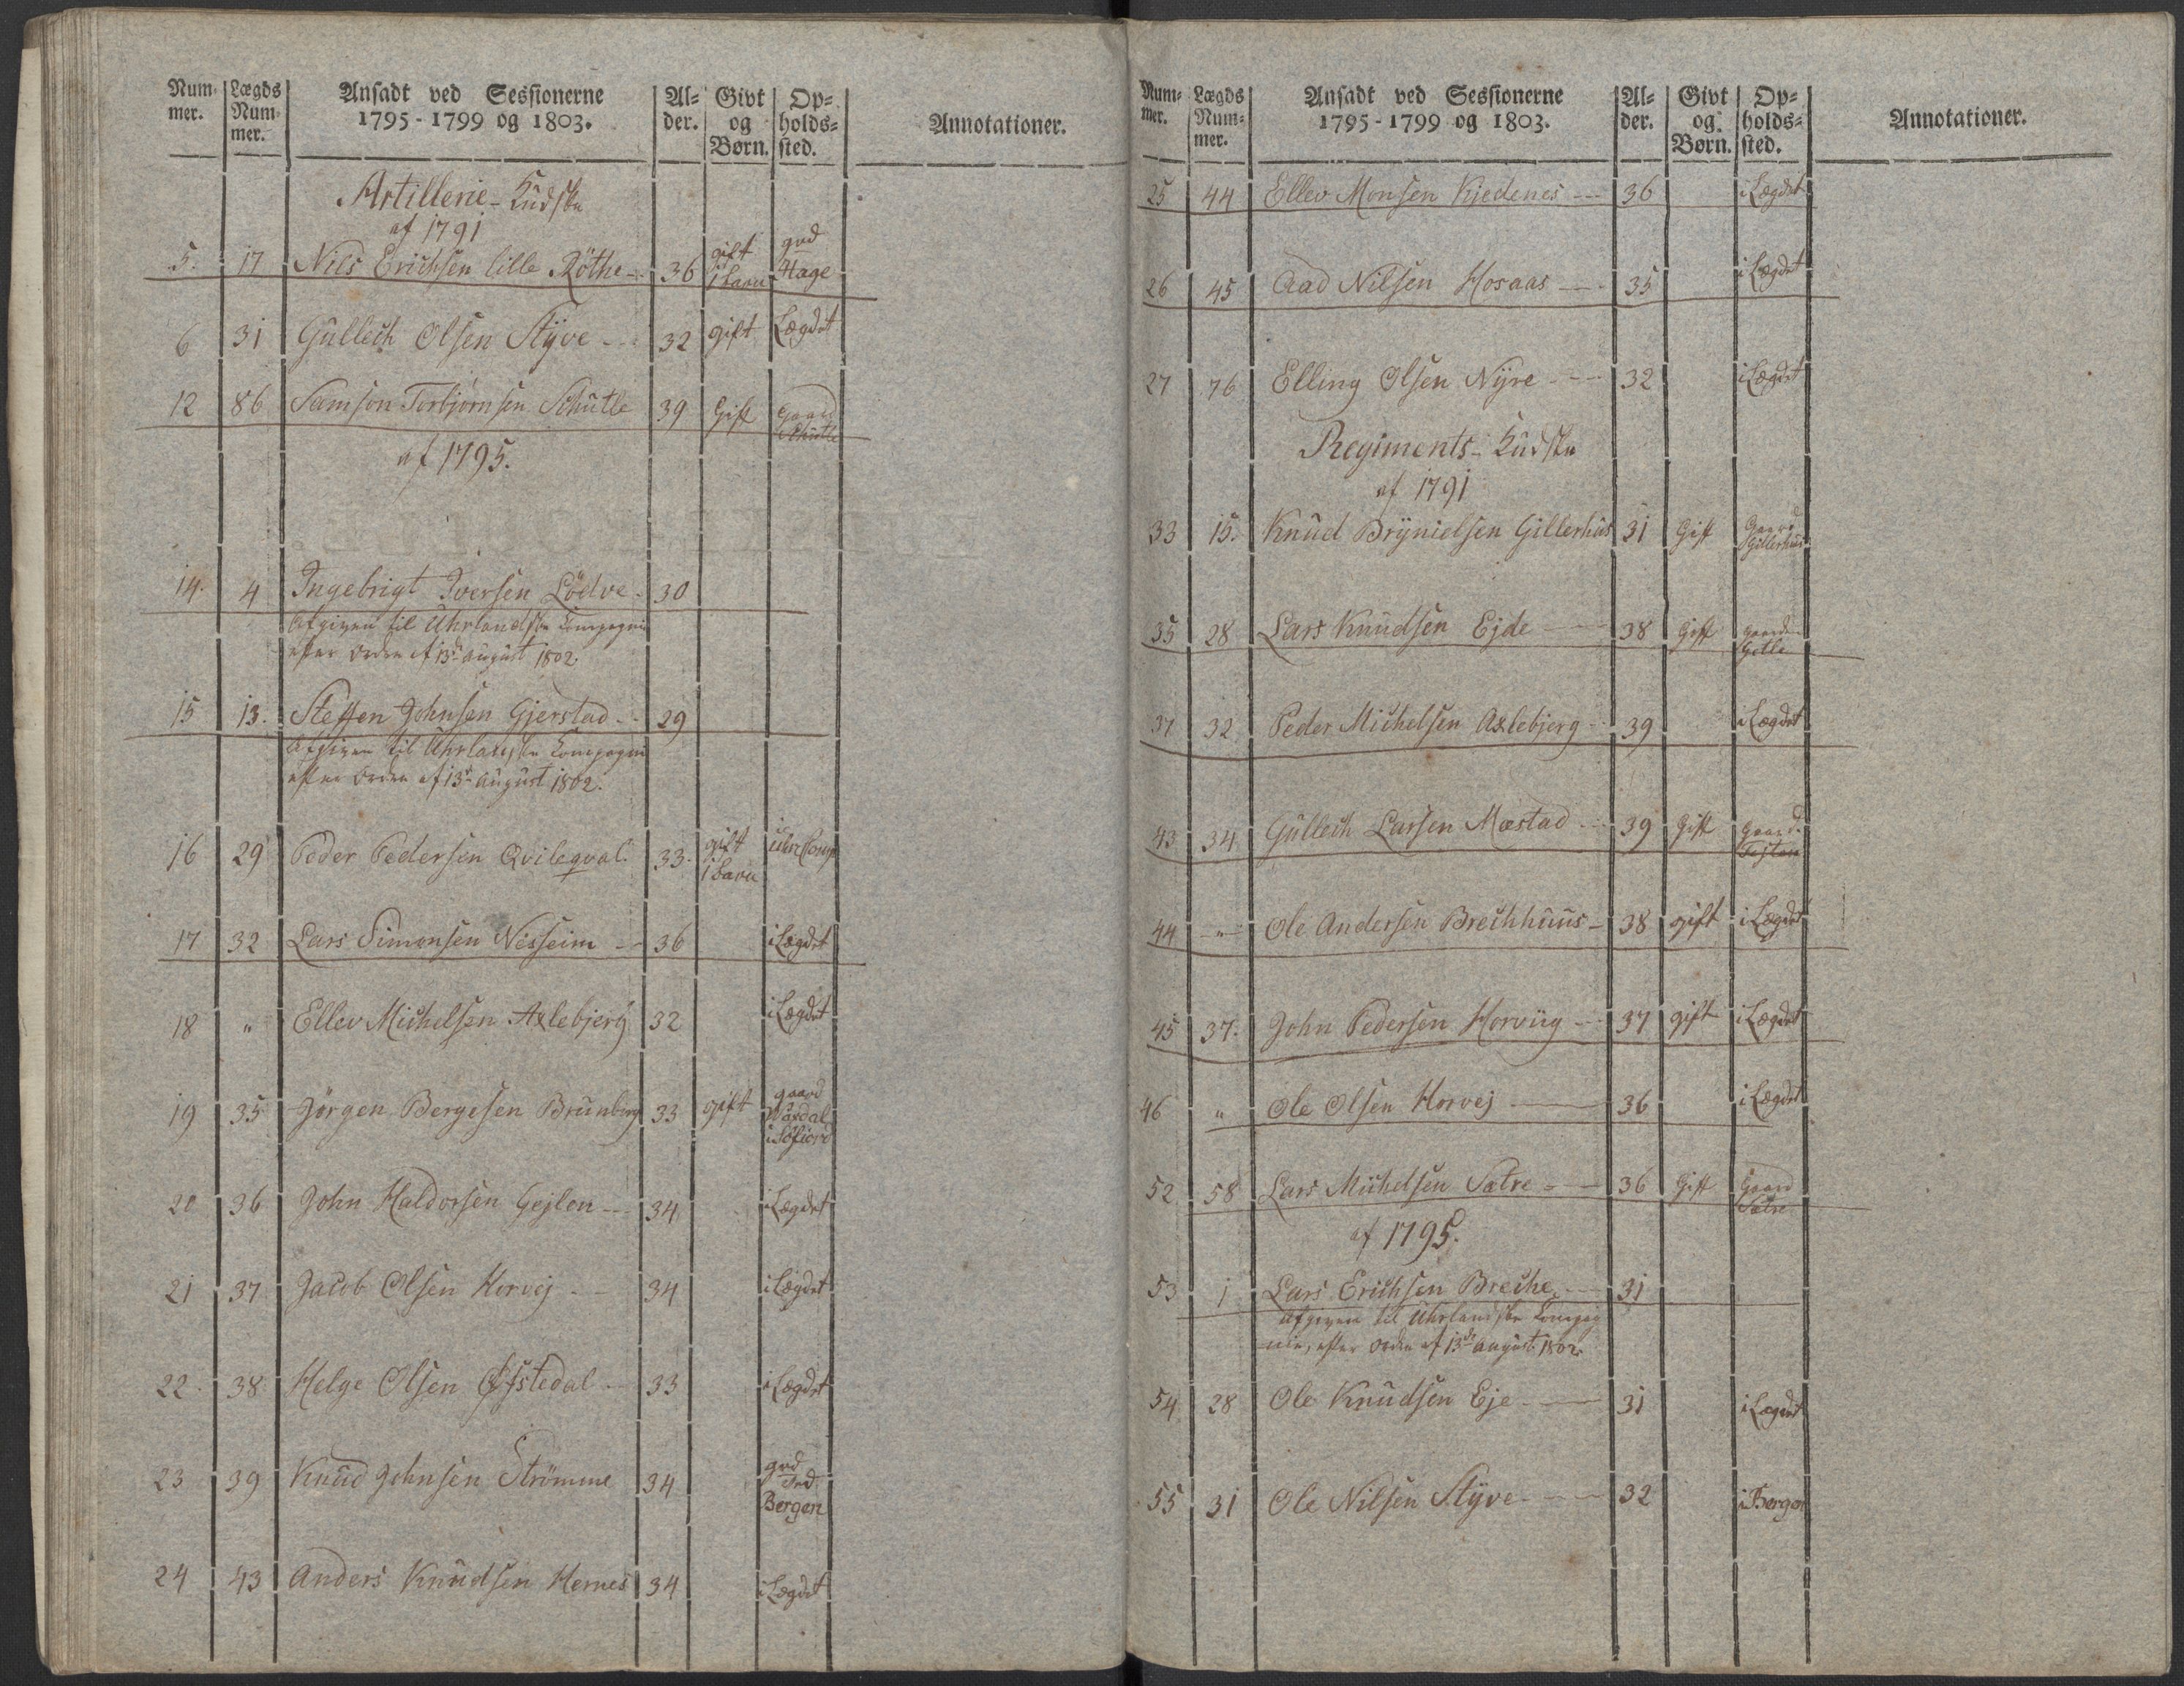 Num- Lægds Ansadt ved Sessionerne Al- Givt Op-
mer. Num- 1795-1799 og 1803. der. og holds- Annotationer.
mer. Børn. sted.
Artillerie-Kudske
af 1791
5. 17 Nils Erichsen lille Röthe 36 gift 1 barn grd Hage
6 31 Gullech Olsen Styve 32 gift Lægdet
12 86 Samson Torbjørnsen Schutle 39 Gift Gaard Schutle
af 1795.
14. 4 Ingebrigt Iversen Lödve 30
Afgiven til Uhrlandske Compagnie
efter Ordre af 13de August 1802.
15 13. Steffen Johnsen Gjerstad 29
Afgiven til Uhrlandske Compagnie
efter Ordre af 13de August 1802.
16 29 Peder Pedersen Qvileqval 33. gift 1 barn
17 32 Lars Simonsen Nesseim 36 i Lægdet
18 " Ellev Michelsen Axlebjerg 32 i Lægdet
19 35 Jörgen Bergesen Brunborg 33 gift gaard
20 36 John Haldorsen Gejlen 34 i Lægdet
21 37 Jacob Olsen Horvej 34 i Lægdet
22. 38 Helge Olsen Øfstedal 33 i Lægdet
23 39 Knud Johnsen Strömme 34 grd
Bergen
24 43 Anders Knudsen Hernes 34 i Lægdet
Num- Lægds Ansadt ved Sessionerne Al- Givt Op-
mer. Num- 1795-1799 og 1803. der. og holds- Annotationer.
mer. Børn. sted.
25 44 Ellev Monsen Kjedenes 36 i Lægdet
26 45 Aad Nilsen Hosaas 35 i Lægdet
27 76 Elling Olsen Nyre 32 i Lægdet
Regiments-Kudske
af 1791
33 15. Knud Brynielsen Gillerhus 31 Gift Gaard Gillerhuus
35 28 Lars Knudsen Ejde 38 Gift gaard
37 32 Peder Michelsen Axlebjerg 39 i Lægdet
43 34 Gullech Larsen Mæstad 39 Gift gaard
44 " Ole Andersen Brechhuus 38 gift i Lægdet
45 37. John Pedersen Horvüg 37 gift i Lægdet
46 " Ole Olsen Horvej 36 i Lægdet
52 58 Lars Michelsen Sætre 36 Gift Gaard Sætre
af 1795.
53 1 Lars Erichsen Breche 31
Afgiven til Uhrlandske Compag
nie, efter Ordre af 13de August 1802.
54 28 Ole Knudsen Eje 31 i Lægdet
55 31 Ole Nilsen Styve 32 i Bergen